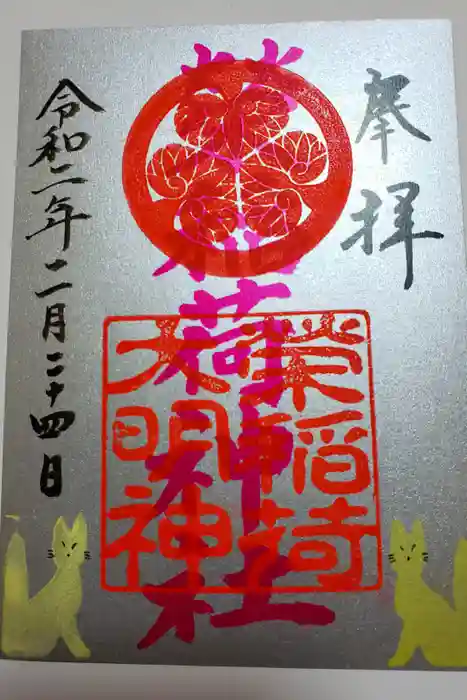 奉拝
榮稲荷神社
榮稲荷
大明神
令和二年二月二十四日